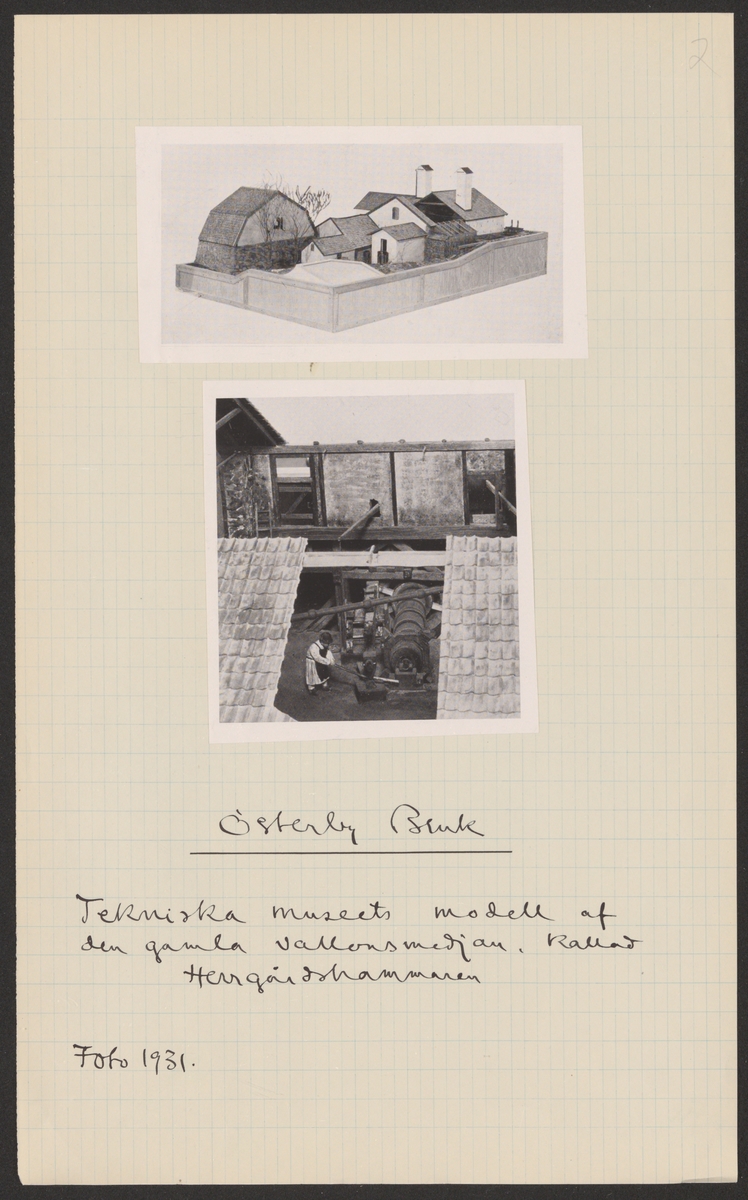 2
Österby Bruk
Tekniska museets modell af
den gamla vallonsmedjan, kallad
Herrgårdshammaren
Foto 1931.